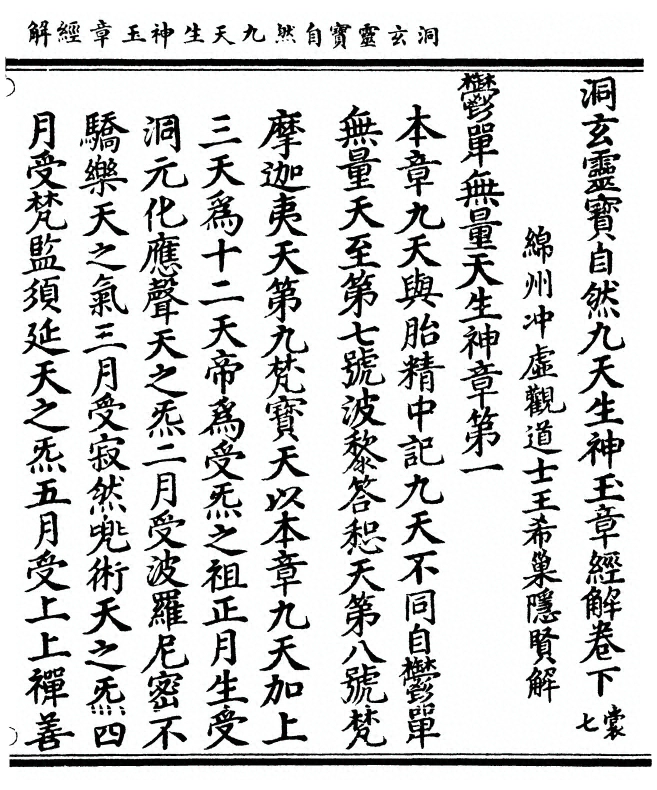 洞玄靈寶自然九天生神玉章經解
洞玄靈寶自然九天生神玉章經解卷下 裳七
綿州冲虛觀道士王希巢隱賢解
鬱單無量天生神章第一
本章九天與胎精中記九天不同自鬱單
無量天至第七號波黎答惒天第八號梵
摩迦夷天第九梵寶天以本章九天加上
三天爲十二天帝爲受炁之祖正月生受
洞元化應聲天之炁二月受波羅尼密不
驕樂天之氣三月受寂然兠術天之炁四
月受梵監須延天之炁五月受上上禪善